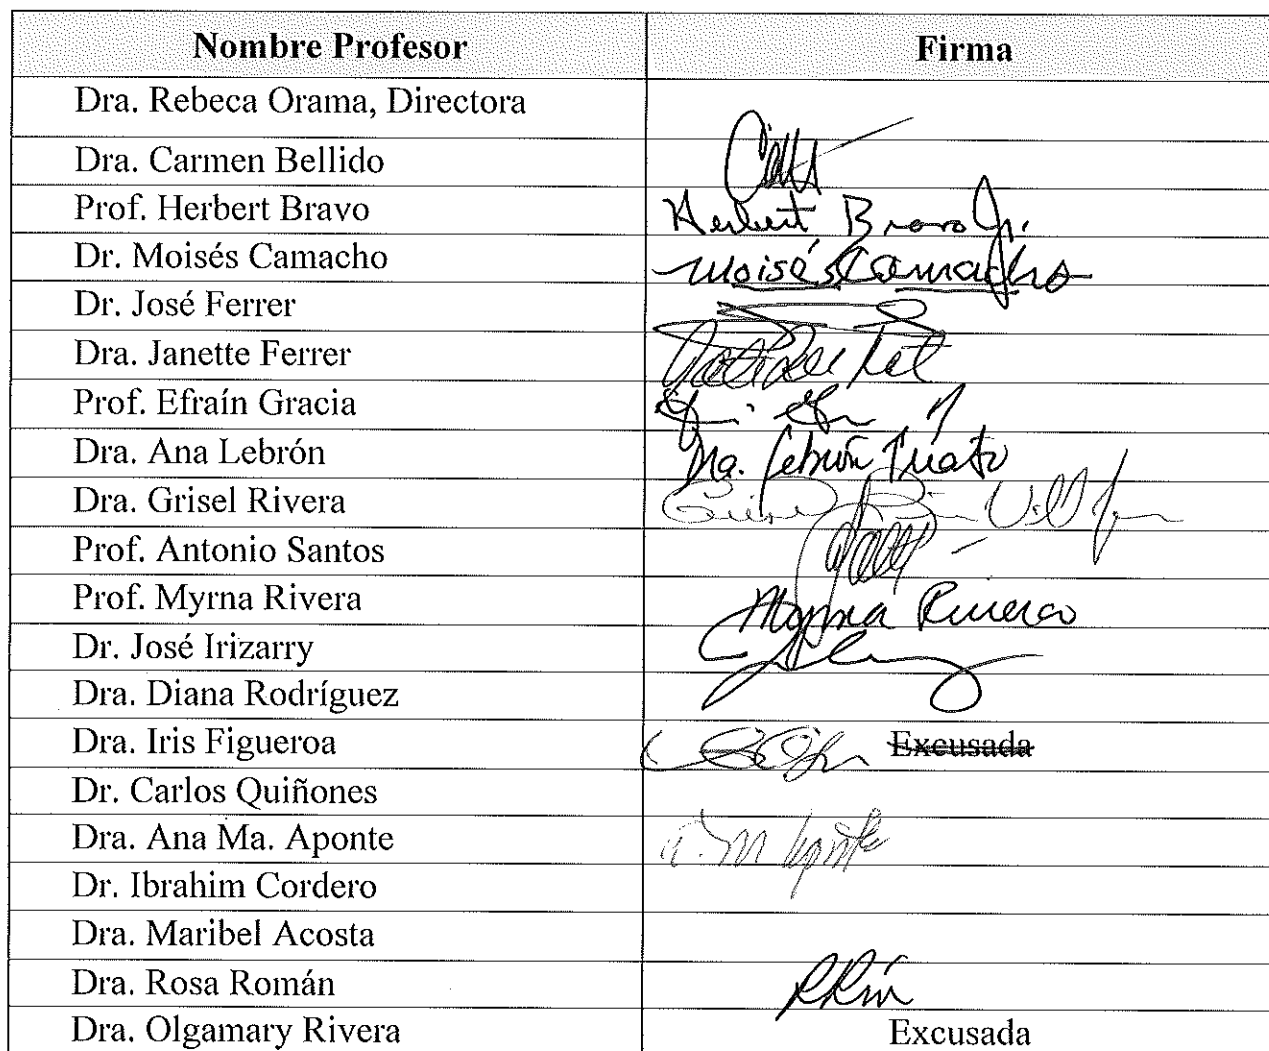 Nombre Profesor Firma
Dra. Rebeca Orama, Directora
Dra. Carmen Bellido
Prof. Herbert Bravo Herbert Bravo Jr.
Dr. Moisés Camacho Moisés Camacho
Dr. José Ferrer
Dra. Janette Ferrer
Prof. Efraín Gracia
Dra. Ana Lebrón
Dra. Grisel Rivera
Prof. Antonio Santos
Prof. Myrna Rivera Myrna Rivera
Dr. José Irizarry
Dra. Diana Rodríguez
Dra. Iris Figueroa Excusada
Dr. Carlos Quiñones
Dra. Ana Ma. Aponte A. M Aponte
Dr. Ibrahim Cordero
Dra. Maribel Acosta
Dra. Rosa Román
Dra. Olgamary Rivera Excusada